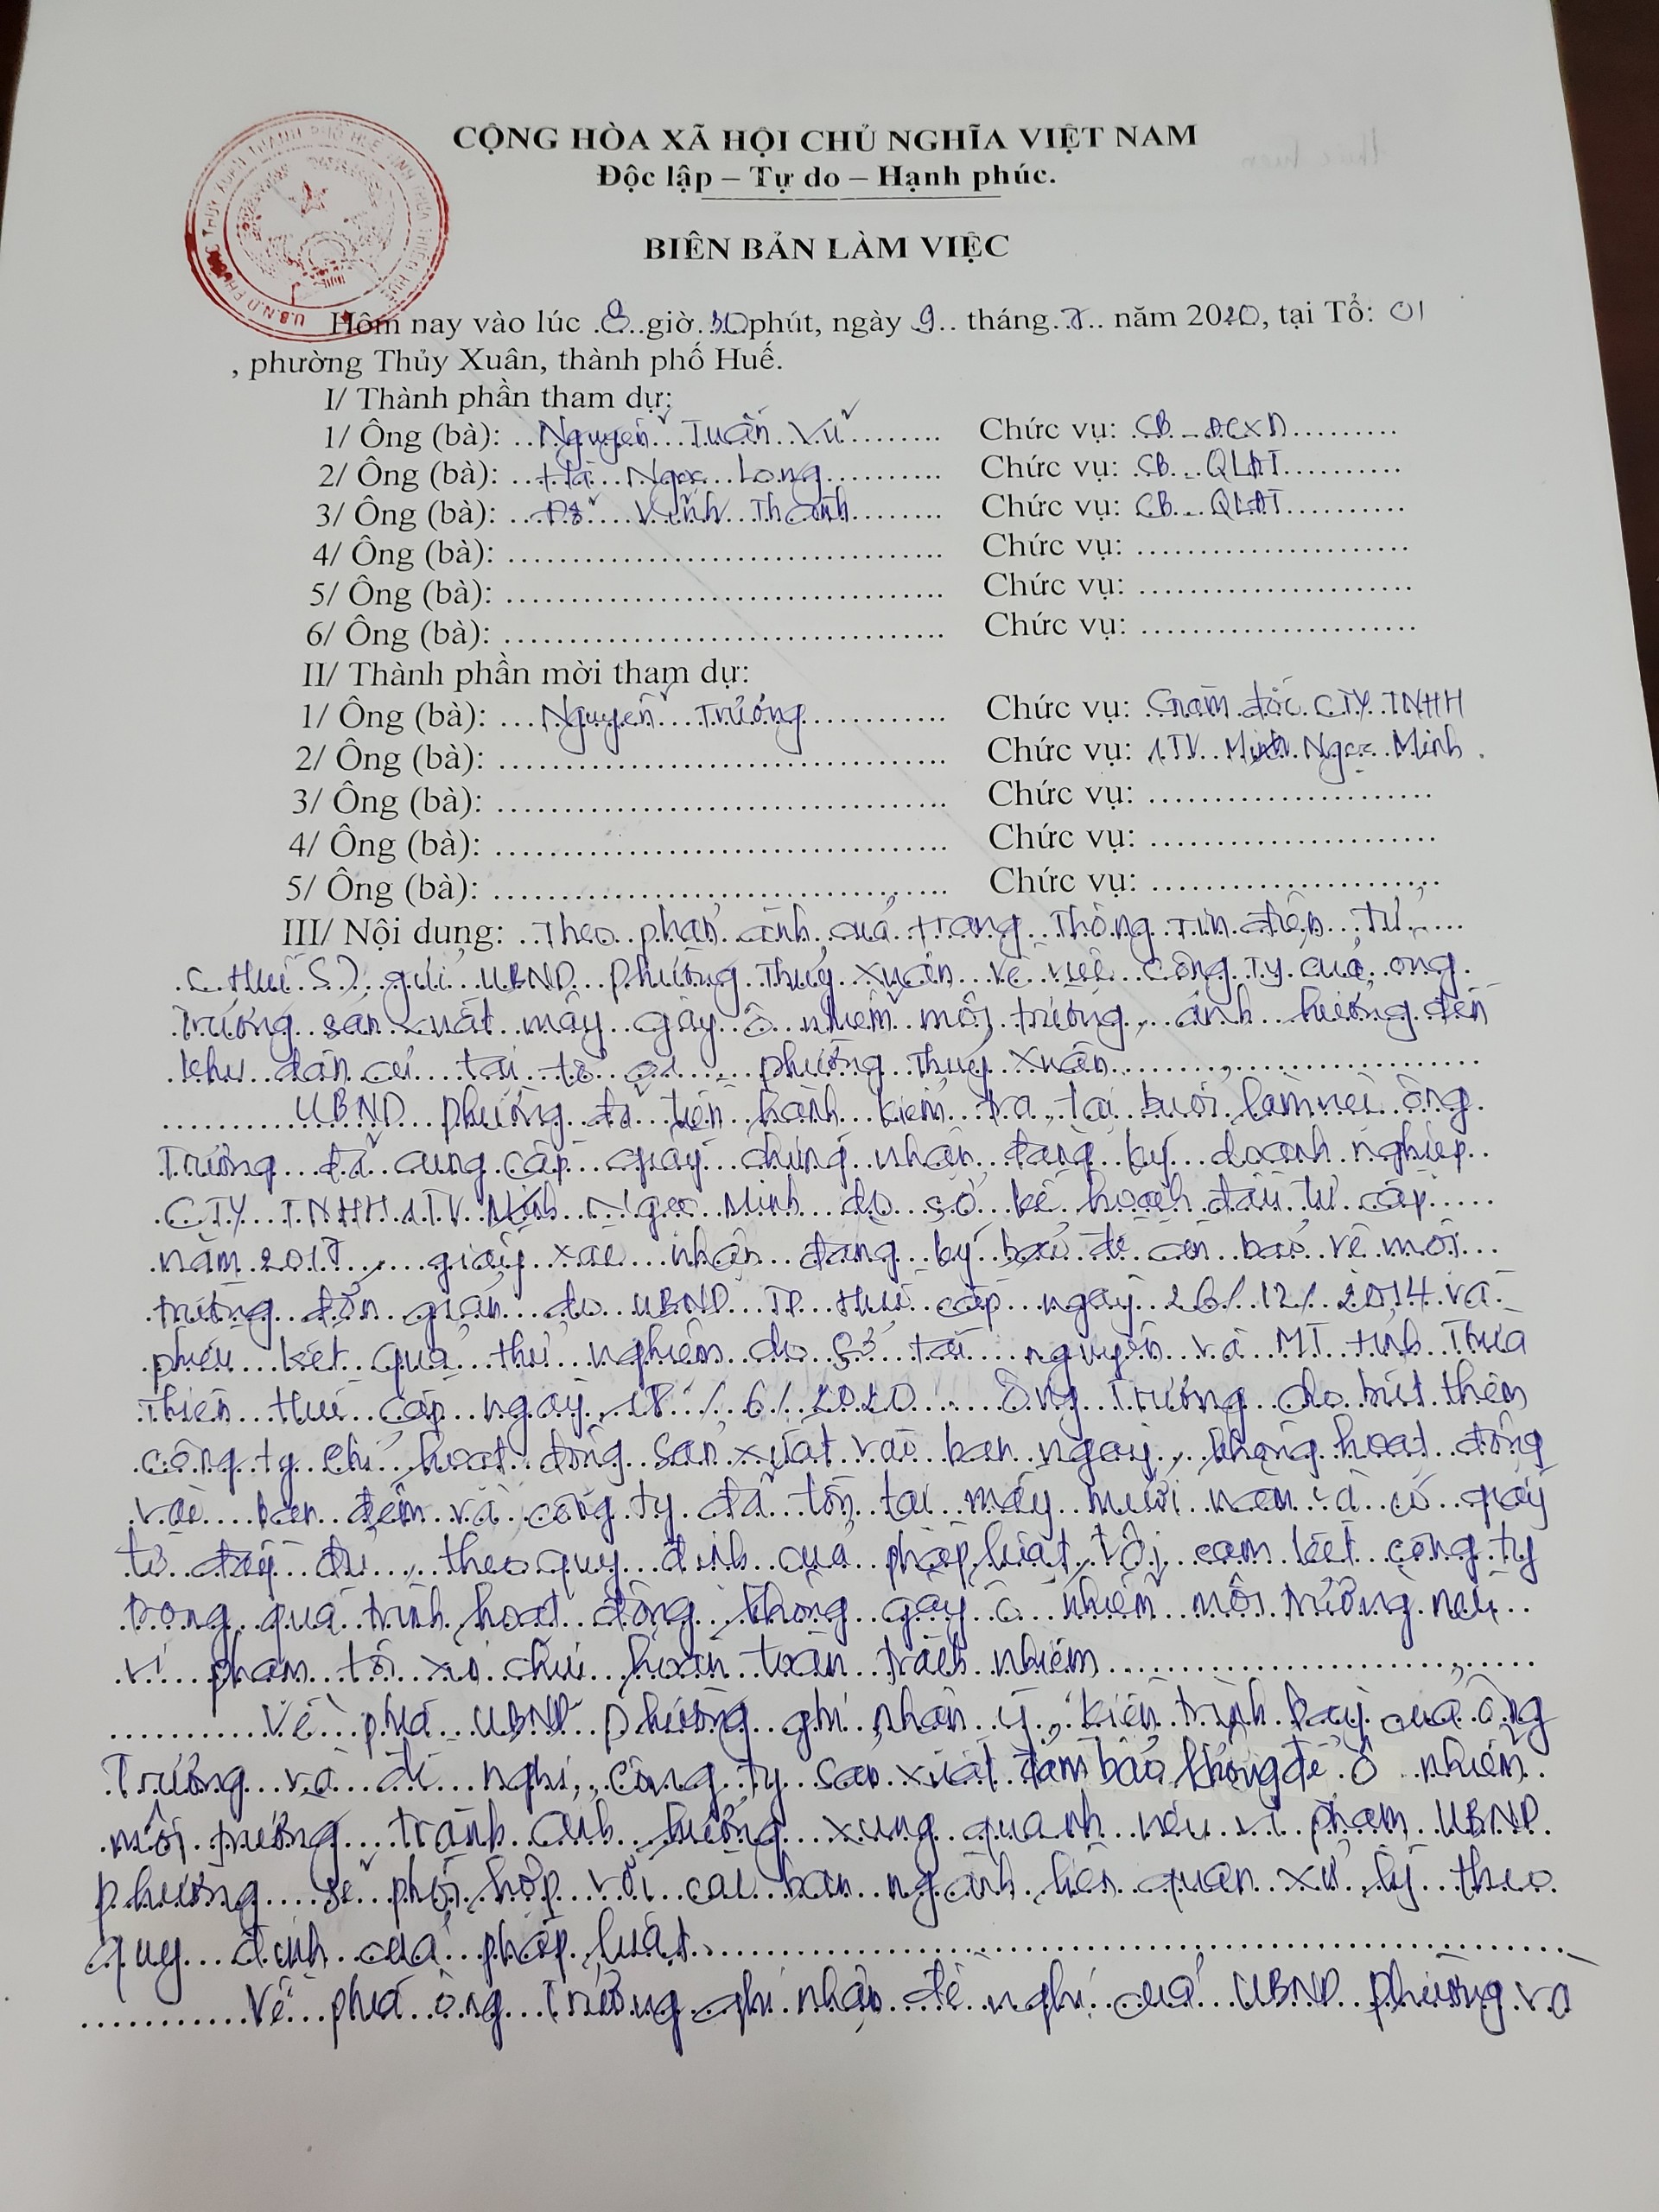 CỘNG HÒA XÃ HỘI CHỦ NGHĨA VIỆT NAM
Độc lập – Tự do – Hạnh phúc.
BIÊN BẢN LÀM VIỆC
Hôm nay vào lúc 8 giờ 30 phút, ngày 9 tháng 7 năm 2020, tại Tổ: 01
, phường Thủy Xuân, thành phố Huế.
I/ Thành phần tham dự:
1/ Ông (bà): Nguyễn Tuấn Vũ Chức vụ: CB - ĐCXD
2/ Ông (bà): Hà Ngọc Long Chức vụ: CB - QLĐT
3/ Ông (bà): Đỗ Vĩnh Thành Chức vụ: CB - QLĐT
4/ Ông (bà): Chức vụ:
5/ Ông (bà): Chức vụ:
6/ Ông (bà): Chức vụ:
II/ Thành phần mời tham dự:
1/ Ông (bà): Nguyễn Trưởng Chức vụ: Giám đốc CTY TNHH
2/ Ông (bà): Chức vụ: 1TV Minh Ngọc Minh.
3/ Ông (bà): Chức vụ:
4/ Ông (bà): Chức vụ:
5/ Ông (bà): Chức vụ:
III/ Nội dung: Theo phản ánh của trang Thông Tin điện Tử
(Huế S) gửi UBND phường Thủy Xuân về việc Công Ty của ông
Trưởng sản xuất mây gây ô nhiễm môi trường, ảnh hưởng đến
khu dân cư tại tổ 01, phường Thủy Xuân
UBND phường đã tiến hành kiểm tra, tại buổi làm việc ông
Trưởng đã cung cấp giấy chứng nhận đăng ký doanh nghiệp
CTY TNHH 1TV Minh Ngọc Minh do sở kế hoạch đầu tư cấp
năm 2017, giấy xác nhận đăng ký bản đề án bảo vệ môi
trường đơn giản do UBND TP Huế cấp ngày 26/12/2014 và
phiếu kết quả thử nghiệm do Sở tài nguyên và MT tỉnh Thừa
Thiên Huế cấp ngày 18/6/2020. Ông Trưởng cho biết thêm
công ty chỉ hoạt động sản xuất vào ban ngày, không hoạt động
vào ban đêm và công ty đã tồn tại mấy mươi năm và có giấy
tờ đầy đủ, theo quy định của pháp luật, Tôi cam kết công ty
trong quá trình hoạt động không gây ô nhiễm môi trường nếu
vi phạm tôi xin chịu hoàn toàn trách nhiệm
Về phía UBND phường ghi nhận ý kiến trình bày của ông
Trưởng và đề nghị, công ty sản xuất đảm bảo không để ô nhiễm
môi trường, tránh ảnh hưởng xung quanh nếu vi phạm UBND
phường sẽ phối hợp với các ban ngành liên quan xử lý theo
quy định của pháp luật.
Về phía ông Trưởng ghi nhận đề nghị của UBND phường và